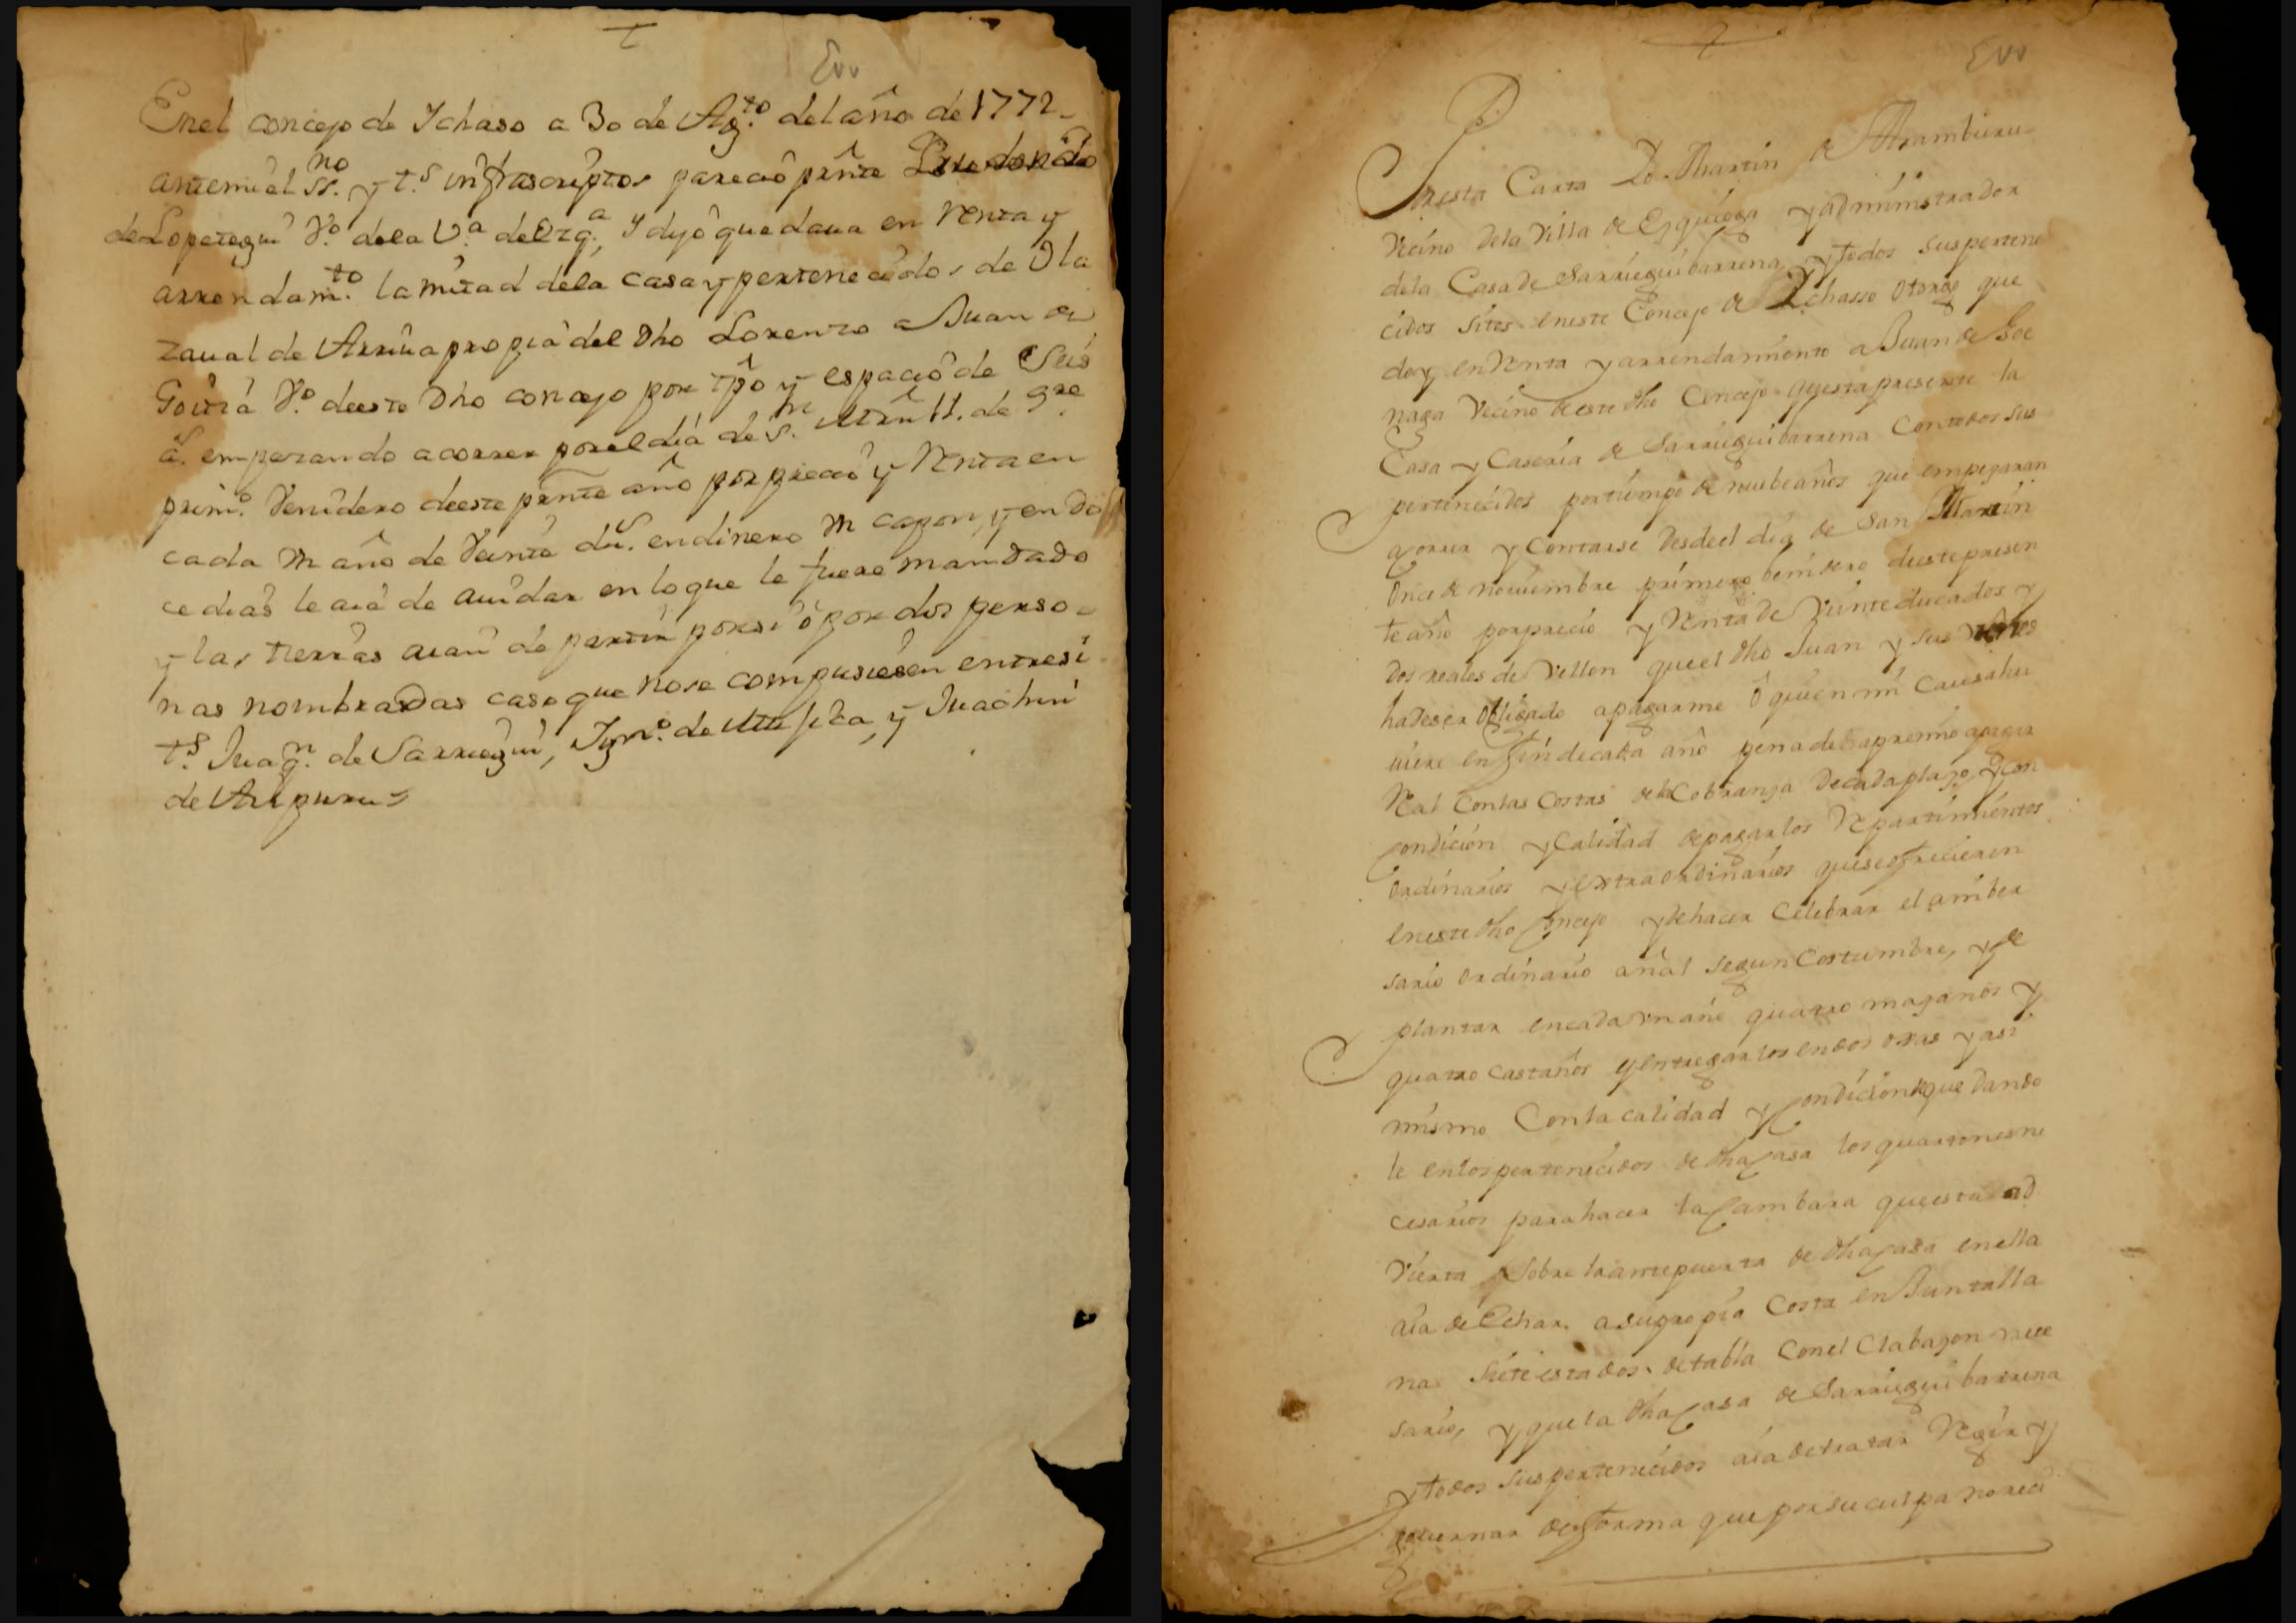 Enel concejo de Ychaso a 30 de Ag.to del año de 1772
antemi el ss.no y t.s infrascriptos pareció pnte
de Lopetegui V.o dela V.a de Ozq.a, y dijo que daua en Renta y
arrendam.to la mitad dela casa y perteneçidos de Ola
zaual de Arriua propia del Dho Lorenzo a Juan de
Goitia V.o deeste Dho concejo por tpo y espacio de Seis
a.s empezando a correr por el dia de S.n Mrn 11. de 9.re
prim.o Venidero deeste pnte año por precio y Renta en
cada Vn año de Veinte du.s en dinero Vn capon, y en do
ce dias le aia de aiudar en lo que le fuere mandado
y las tierras aian de partir por si ó por dos perso
nas nombradas caso que nose compusiesen entresi
t.s Juaq.n de Sarriegui, Ygn.o de Mujica, y Juachin
de Aizpuru
Por esta Carta Yo Martin de Aramburu
Vecino dela Villa de Ezquioga y administrador
dela Casa de Sarrieguibarrena, y todos sus pertene
cidos sitos eneste Concejo de Ychasso otorgo que
doy en Renta y arrendamiento a Juan de Goe
naga Vecino deeste dho Concejo questa presente la
Casa y Caseria de Sarrieguibarrena Contodos sus
pertenecidos por tiempo de nuebe años que empezaran
a correr y Contarse Desde el dia de San Martin
Once de nouiembre primero benidero deeste presen
te año por precio y Renta de Veinte ducados y
dos reales de Vellon que el dho Juan y sus
ha De ser Obligado a pagarme ô quien mi Causa hu
uiere en fin de cada año pena de apremio
Real Con las Costas de la Cobranza De cada plazo, y con
condicion y Calidad de pagar los Repartimientos
Ordinarios y extraordinarios que se ofrecieren
eneste dho Concejo y de hacer Celebrar el aniber
sario ordinario añal segun Costumbre, y de
plantar encada vn año quatro mazanos y
quatro castaños y entregarlos en dos oxas y asi
mismo Con la calidad y Condicion de que dando
le en los pertenecidos de dha Casa los quartones ne
cesarios para hacer la Cambara que esta ad
Vierta sobre la antepuerta de dha Casa en ella
aia de Echar a su propia Costa en Juntalla
na siete estados de tabla Con el Clabazon nece
sario, y que la dha Casa de Sarrieguibarrena
y todos sus pertenecidos aia de tratar Regir y
gouernar de forma que por su culpa no reci